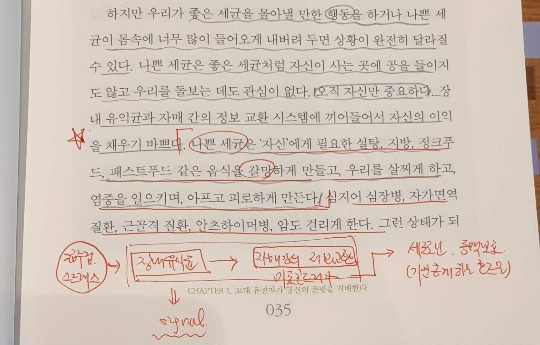 하지만 우리가 좋은 세균을 몰아낼 만한 행동을 하거나 나쁜 세
균이 몸속에 너무 많이 들어오게 내버려 두면 상황이 완전히 달라질
수 있다. 나쁜 세균은 좋은 세균처럼 자신이 사는 곳에 공을 들이지
도 않고 우리를 돌보는 데도 관심이 없다. 오직 자신만 중요하다. 장
내 유익균과 자매 간의 정보 교환 시스템에 끼어들어서 자신의 이익
을 채우기 바쁘다. 나쁜 세균은 '자신'에게 필요한 설탕, 지방, 정크푸
드, 패스트푸드 같은 음식을 갈망하게 만들고, 우리를 살찌게 하고,
염증을 일으키며, 아프고 피로하게 만든다. 심지어 심장병, 자가면역
질환, 근골격 질환, 알츠하이머병, 암도 걸리게 한다. 그런 상태가 되
스트레스
장내유익균
세로토닌
signal
CHAPTER 1. 고대 유전자가 당신의 운명을 지배한다
035